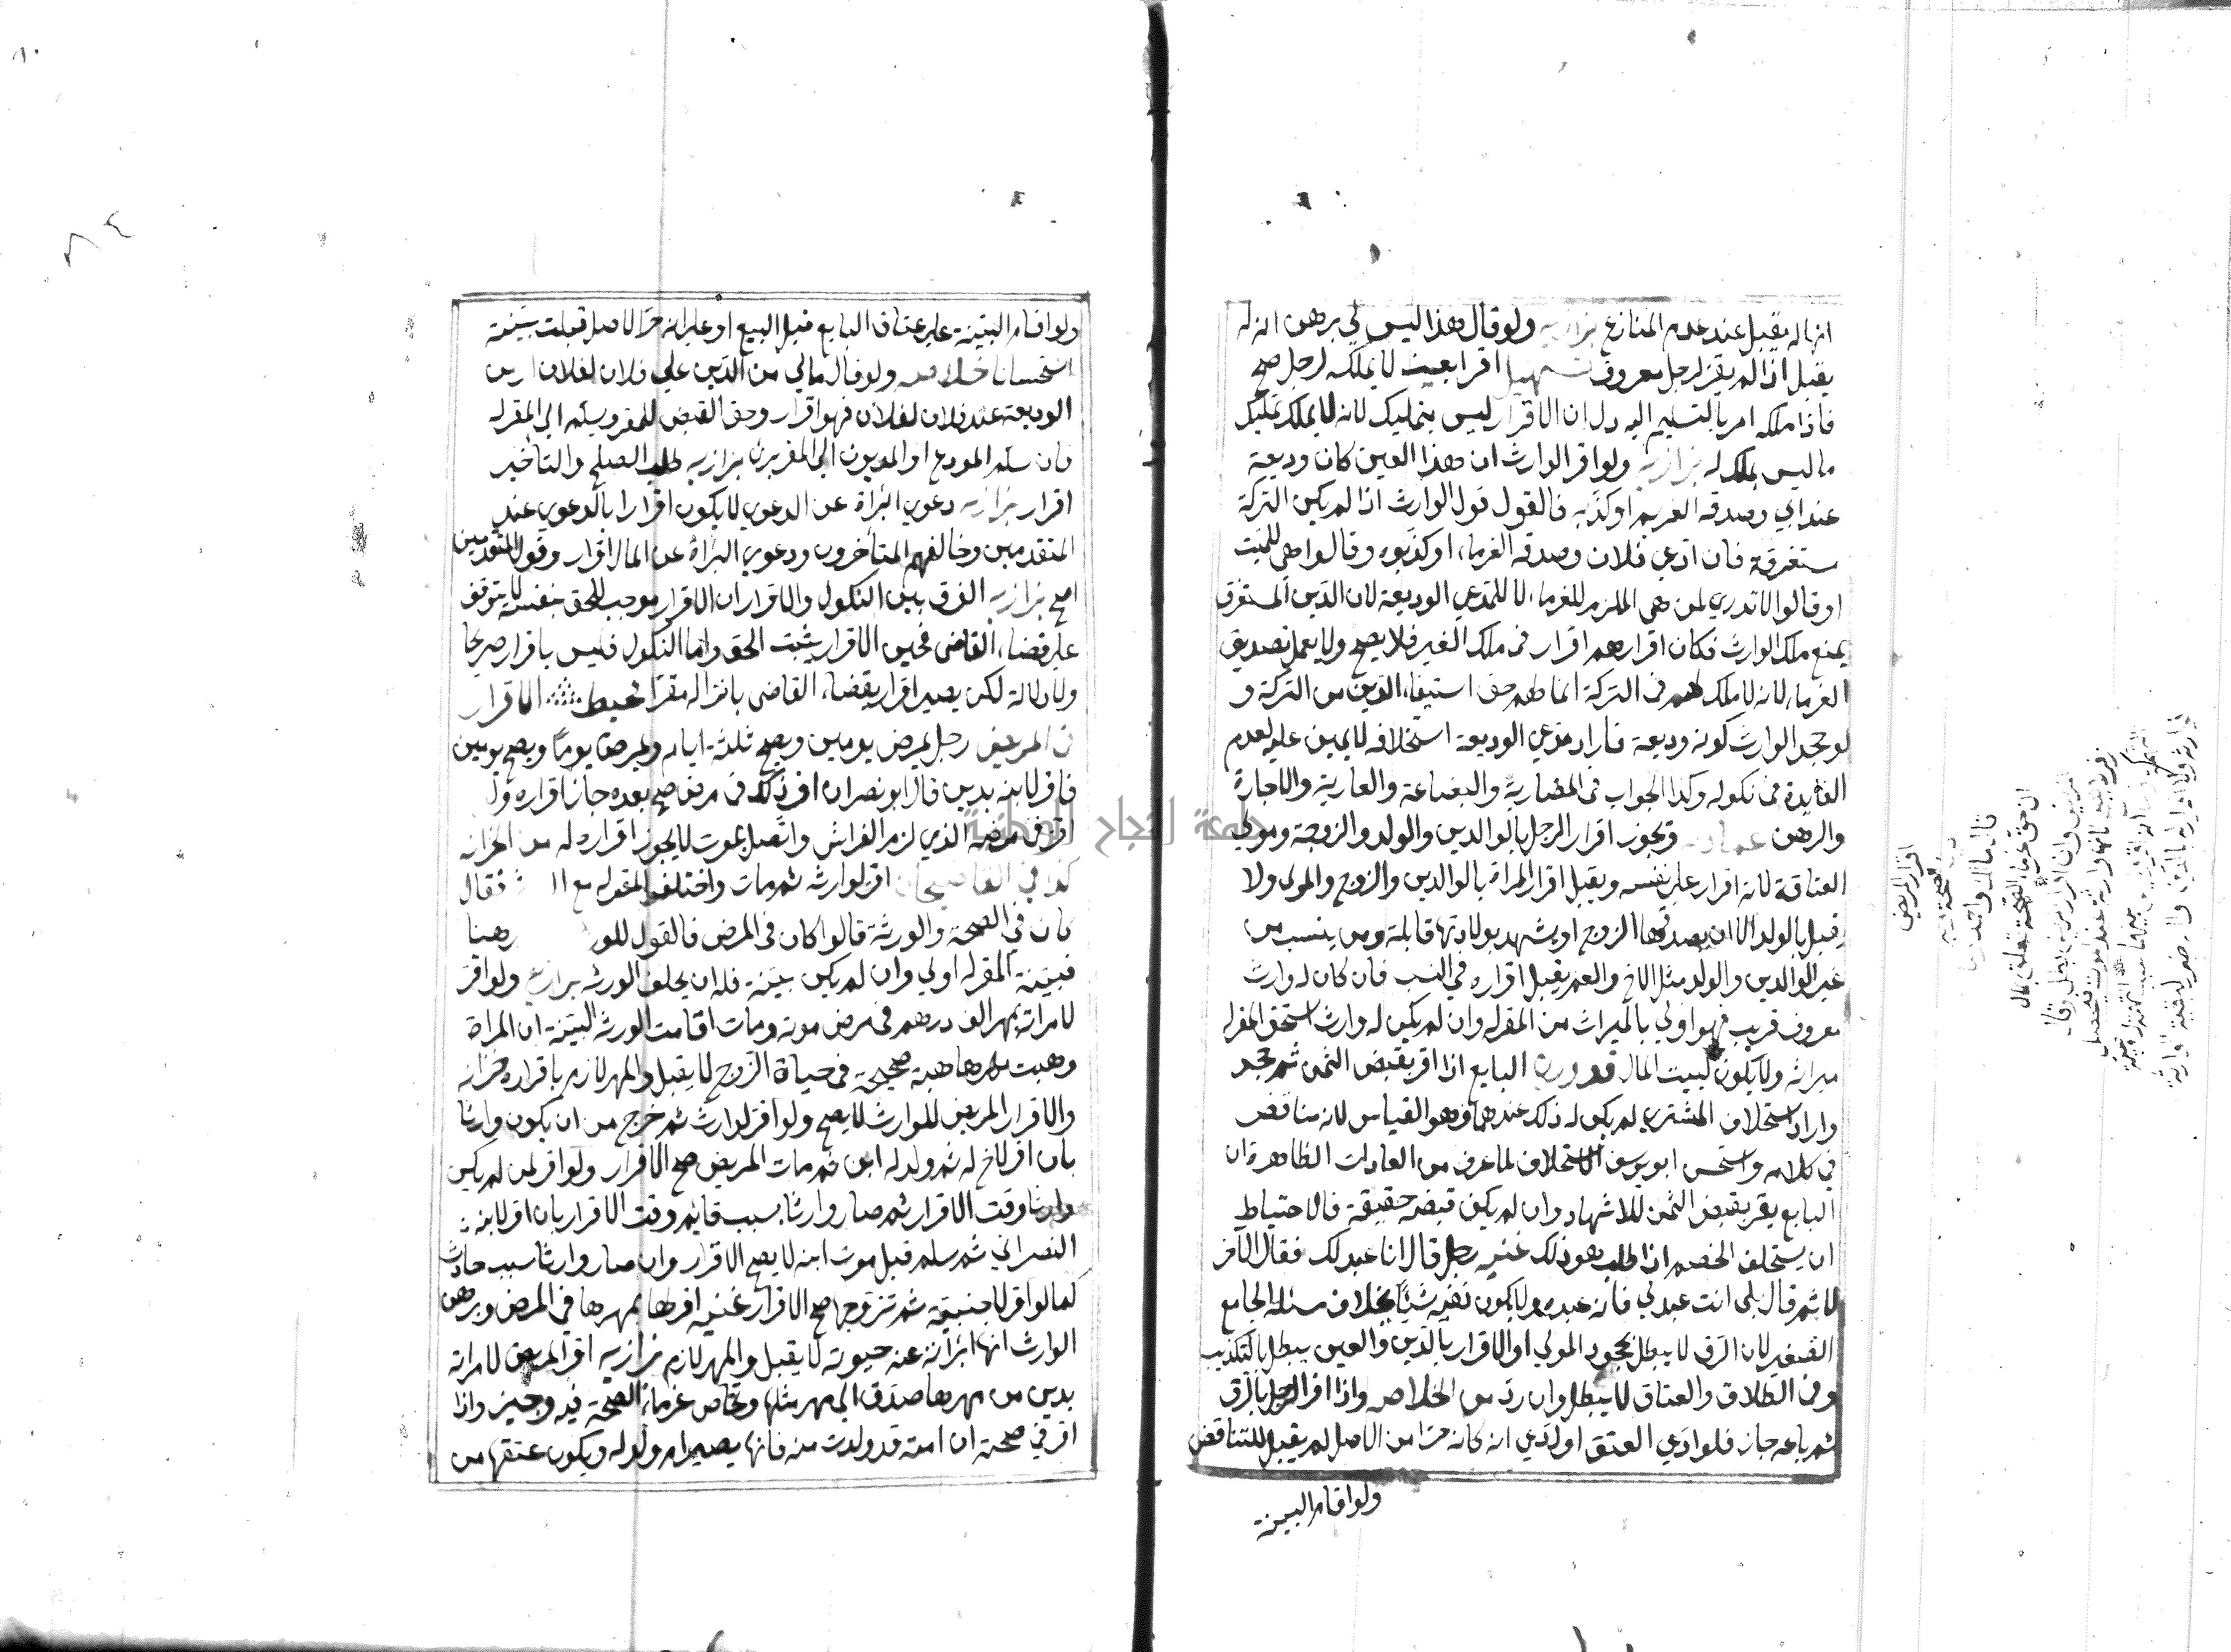 انها له يقبل عند عدم المنازع بزازيه ولو قال هذا ليس لي برهن انه له
يقبل اذا لم يقر لرجل معروف تسهيل اقر ا بعين لا يملكه لرجل صح
فاذا ملكه امر بالتسليم اليه دل ان الاقرار ليس بتمليك لانه لا يملك تمليك
ما ليس بملك له بزازيه ولو اقر الوارث ان هذا العين كان وديعة
عند ابي وصدقه الغريم او كذبه فالقول قول الوارث اذا لم يكن التركة
مستغرقة فان ادعي فلان وصدقه الغرماء او كذبوه وقالوا هي للميت
او قالوا لا ندري لمن هي الملزم للغرماء لا للمدعي الوديعة لان الدين المستغرق
يمنع ملك الوارث فكان اقرارهم اقرار في ملك الغير فلا يصح ولا يعمل تصديق
الغرماء لانه لا ملك لهم في التركة انما لهم حق استيفاء الدين من التركة و
لو جحد الوارث كونه وديعة فاراد مدعي الوديعة استحلافه لا يمين عليه لعدم
الفائدة في نكوله وكذا الجواب في المضاربة والبضاعة والعارية والاجارة
والرهن عماديه ويجوز اقرار الرجل بالوالدين والولد والزوجة ومولي
العتاقة لانه اقرار علي نفسه ويقبل اقرار المراة بالوالدين والزوج والمولي ولا
يقبل بالولد الا ان يصدقها الزوج او يشهد بولادتها قابلة ومن ينسب من
غير الوالدين والولد مثل الاخ والعم يقبل اقراره في النسب فان كان له وارث
معروف قريب فهو اولي بالميراث من المقر له وان لم يكن له وارث استحق المقر له
ميراثه ولا يكون لبيت المال قدوري البايع اذا اقر بقبض الثمن ثم جحد
واراد استحلاف المشتري لم يكن له ذلك عندهما وهو القياس لانه مناقض
في كلامه واستحسن ابو يوسف الاستحلاف لما عرف من العادات الظاهرة ان
البايع يقر بقبض الثمن للاشهاد وان لم يكن قبضه حقيقة فالاحتياط
ان يستحلف الخصم اذا طلب هو ذلك غنيه رجل قال انا عبد لك فقال الآخر
لا ثم قال بلي انت عبد لي فانه عبده ولا يكون نفيه شيئا بخلاف مسئلة الجامع
الصغير لان الرق لا يبطل بجحود المولي او الاقرار بالدين والعين يبطل بالتكذيب
وفي الطلاق والعتاق لا يبطل وان رد من الخلاصه واذا اقر الرجل بالرق
ثم باعه جاز فلو ادعي العتق او ادعي انه كان حرا من الاصل لم يقبل للتناقض
ولو اقام البينة
اقرار المريض
ولو اقام البينة علي عتاق البايع قبل البيع او علي انه حر الاصل قبلت بينته
استحسانا خلاصه ولو قال مالي من الدين علي فلان لفلان او من
الوديعة عند فلان لفلان فهو اقرار وحق القبض للمقر ويسلم الي المقر له
فان سلم المودع او المديون الي المقر برئ بزازيه طلب الصلح والتاخير
اقرار بزازيه دعوي البراة عن الدعوي لا يكون اقرارا بالدعوي عند
المتقدمين وخالفهم المتاخرون ودعوي البراة عن المال اقرار وقول المتقدمين
اصح بزازيه الفرق بين النكول والاقرار ان الاقرار موجب للحق بنفسه لا يتوقف
علي قضاء القاضي فحين الاقرار يثبت الحق واما النكول فليس باقرار صريحا
ولا دلالة لكن يصير اقرار بقضاء القاضي بانزاله مقرا محيط الاقرار
في المريض رجل يمرض يومين ويصح ثلثة ايام ويمرض يوما ويصح يومين
فاقر لابنه بدين قال ابو نصر ان اقر ذلك في مرض صح بعده جاز اقراره ولو
اقر في مرضه الذي لزم الفراش واتصل بموت لا يجوز اقراره له من الخزانه
كذا في القاضيخان اقر لوارثه ثم مات واختلف المقر له مع ال فقال
كان في الصحة والورثة قالوا كان في المرض فالقول للور رهنا
فبينة المقر له اولي وان لم يكن بينة فله ان يحلف الورثة بزازيه ولو اقر
لامراته بمهر الف درهم في مرض موته ومات اقامت الورثة البينة ان المراة
وهبت مهرها هبة صحيحة في حياة الزوج لا يقبل والمهر لازم باقراره خزانه
والاقرار المريض للوارث لا يصح ولو اقر لوارث ثم خرج من ان يكون وارثا
بان اقر لاخ له ثم ولد له ابن ثم مات المريض صح الاقرار ولو اقر لمن لم يكن
وارثا وقت الاقرار ثم صار وارثا بسبب قايم وقت الاقرار بان اقر لابنه
النصراني ثم سلم قبل موت ابنه لا يصح الاقرار وان صار وارثا بسبب حادث
كما لو اقر لاجنبية ثم تزوجها صح الاقرار غنيه اقر لها بمهرها في المرض وبرهن
الوارث انها ابراته عنه حيوته لا يقبل والمهر لازم بزازيه اقر المريض لامراته
بدين من مهرها صدق الي مهر مثلها وتحاص غرماء الصحة فيه وجيز واذا
اقر في صحته ان امته قد ولدت منه فانها يصير ام ولد له ويكون عتقها من